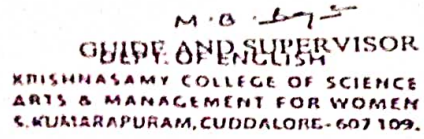 M.B.
GUIDE AND SUPERVISOR
DEPT. OF ENGLISH
KRISHNASAMY COLLEGE OF SCIENCE
ARTS & MANAGEMENT FOR WOMEN
S.KUMARAPURAM, CUDDALORE-607 109.